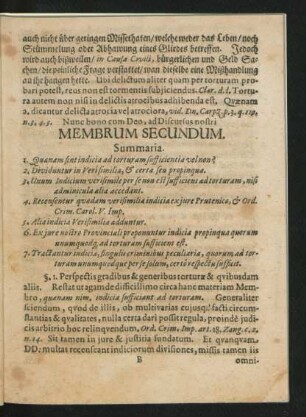 auch nicht über geringen Missethaten/ welche weder das Leben/ noch
Stümmelung oder Abhawung eines Gliedes betreffen. Jedoch
wird auch bißweilen/ in Causa Civili, bürgerlichen und Geld Sa-
chen/ die peinliche Frage verstattet/ wan dieselbe eine Mißhandlung
an ihr hangen hette. Ubi delictum aliter quam per torturam pro-
bari potest, reus non est tormentis subjiciendus. Clar. d. l. Tortu-
ra autem non nisi in delictis atrocibus adhibenda est. Quænam
a. dicantur delicta atrocia vel atrociora, vid. Dn. Carpz. p. 3. q.
n. 5. 4. 5. Nunc bono cum Deo, ad Discursus nostri
MEMBRUM SECUNDUM.
Summaria.
1. Quænam sint indicia ad torturam sufficientia vel non?
2. Dividuntur in Verisimilia, & certa seu propinqua.
3. Unum Indicium verisimile per se non est sufficiens ad torturam, nisi
adminicula alia accedant.
4. Recensentur quædam verisimilia indicia ex jure Prutenico, & Ord.
Crim. Carol. V. Imp.
5. Alia indicia Verisimilia adduntur.
6. Ex jure nostro Provinciali proponuntur indicia propinqua quorum
unumquodq; ad torturam sufficiens est.
7. Tractantur indicia, singulis criminibus peculiaria, quorum ad tor-
turam unumquodque per se solum, certo respectu sufficit.
§. 1. Perspectis gradibus & generibus torturæ & quibusdam
aliis. Restat uragam de difficillimo circa hanc materiam Mem-
bro, quænam nim, indicia sufficiant ad torturam. Generaliter
sciendum, quod de illis, ob multivarias cujusq; facti circum-
stantias & qualitates, nulla certa dari possit regula, proindè judi-
cis arbitrio hoc relinqvendum, Ord. Crim. Imp. art. 18, Zang. c. 2.
n. 14. Sit tamen in jure & justitia fundatum. Et quanqvam
DD: multas recenseant indiciorum divisiones, missis tamen iis
B
omni-